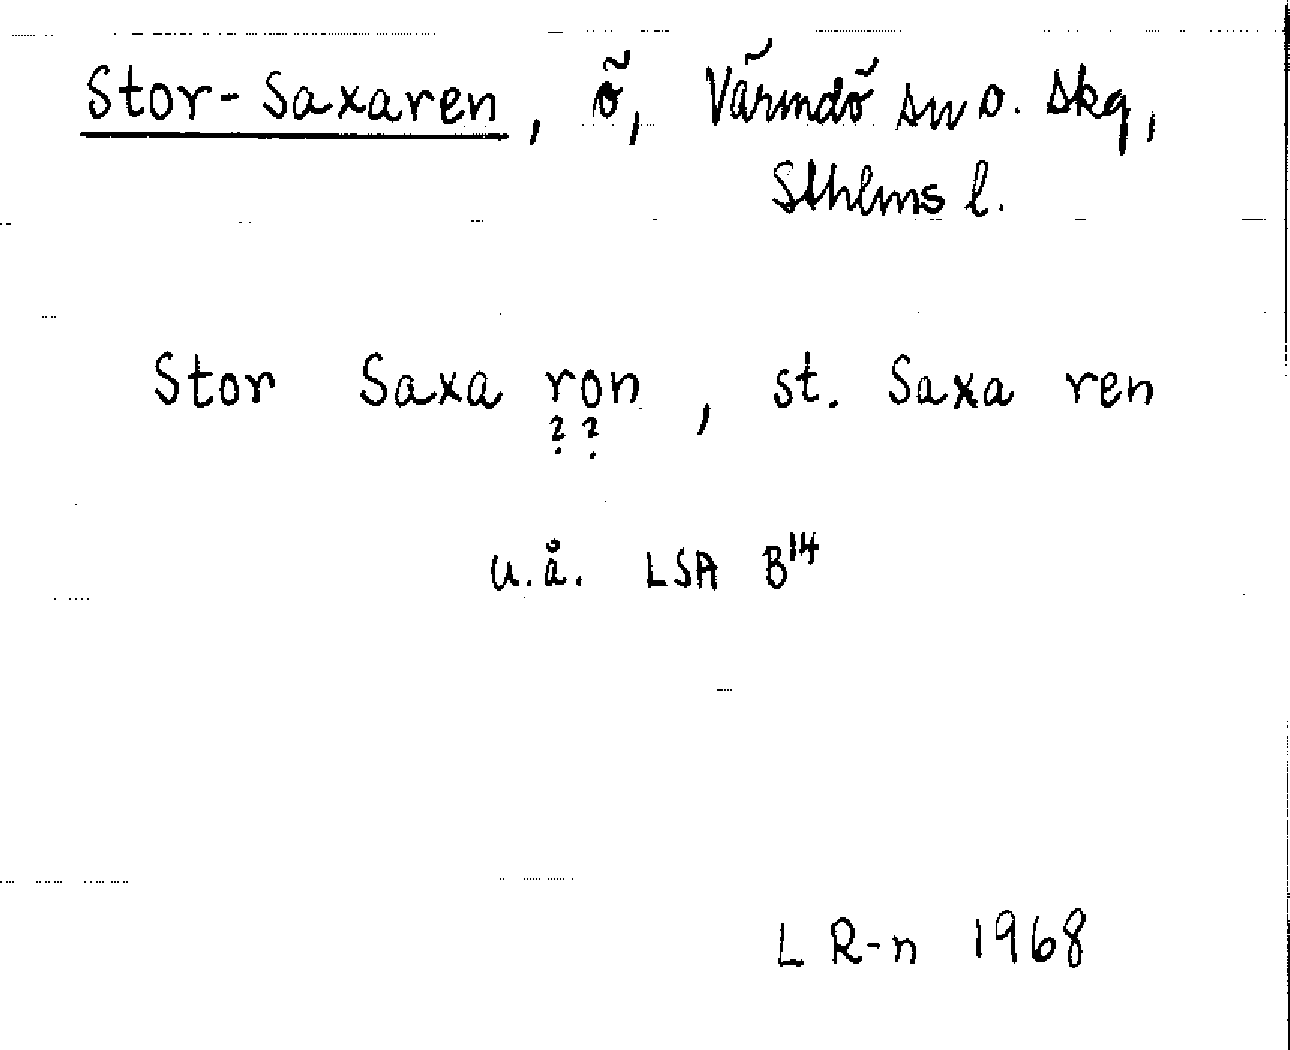 Stor-Saxaren, ö, Värmdö sn o. skg,
Sthlms l.
Stor Saxa ron, st. Saxa ren
? ?
u.å. LSA B14
L R-n 1968